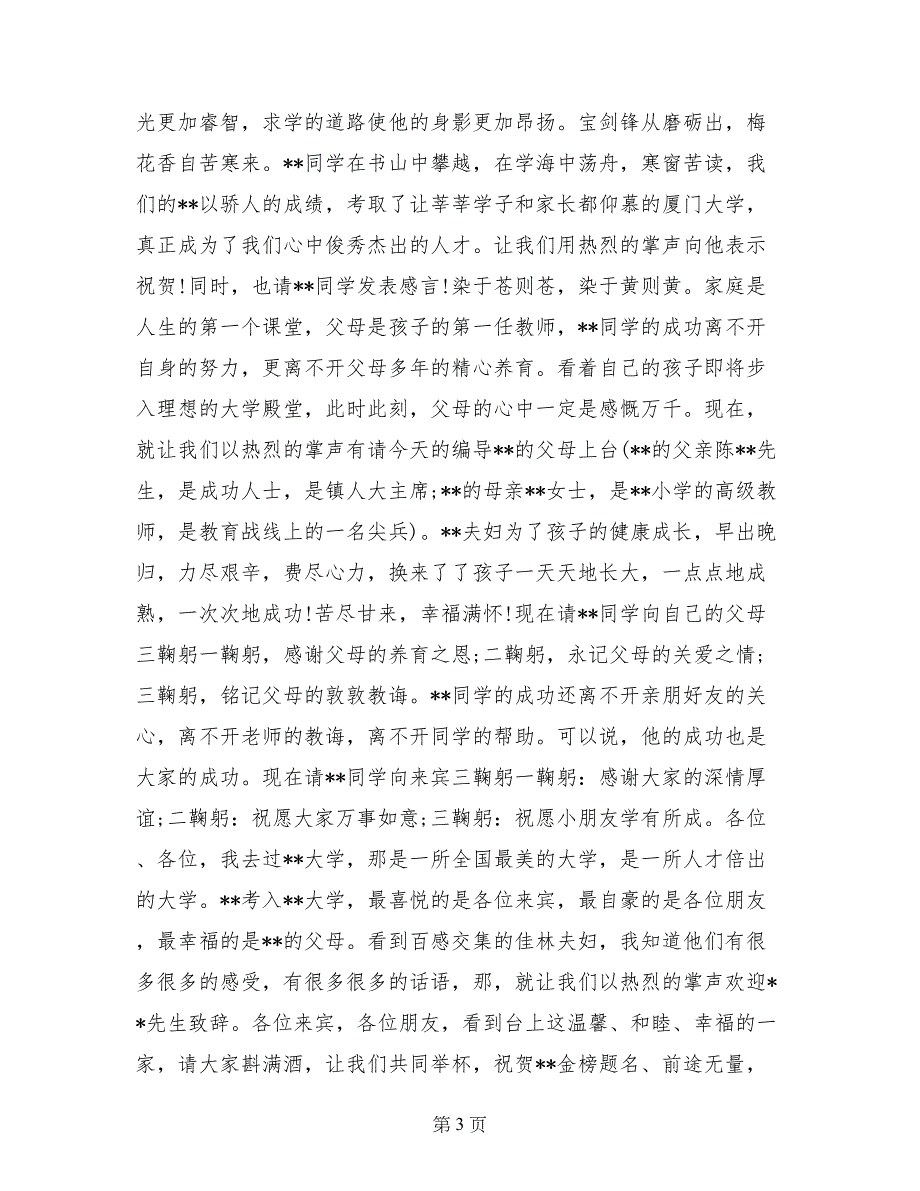 光更加睿智，求学的道路使他的身影更加昂扬。宝剑锋从磨砺出，梅
花香自苦寒来。**同学在书山中攀越，在学海中荡舟，寒窗苦读，我
们的**以骄人的成绩，考取了让莘莘学子和家长都仰慕的厦门大学，
真正成为了我们心中俊秀杰出的人才。让我们用热烈的掌声向他表示
祝贺!同时，也请**同学发表感言!染于苍则苍，染于黄则黄。家庭是
人生的第一个课堂，父母是孩子的第一任教师，**同学的成功离不开
自身的努力，更离不开父母多年的精心养育。看着自己的孩子即将步
入理想的大学殿堂，此时此刻，父母的心中一定是感慨万千。现在，
就让我们以热烈的掌声有请今天的编导**的父母上台(**的父亲陈**先
生，是成功人士，是镇人大主席;**的母亲**女士，是**小学的高级教
师，是教育战线上的一名尖兵)。**夫妇为了孩子的健康成长，早出晚
归，力尽艰辛，费尽心力，换来了了孩子一天天地长大，一点点地成
熟，一次次地成功!苦尽甘来，幸福满怀!现在请**同学向自己的父母
三鞠躬一鞠躬，感谢父母的养育之恩;二鞠躬，永记父母的关爱之情;
三鞠躬，铭记父母的敦敦教诲。**同学的成功还离不开亲朋好友的关
心，离不开老师的教诲，离不开同学的帮助。可以说，他的成功也是
大家的成功。现在请**同学向来宾三鞠躬一鞠躬：感谢大家的深情厚
谊;二鞠躬：祝愿大家万事如意;三鞠躬：祝愿小朋友学有所成。各位
、各位，我去过**大学，那是一所全国最美的大学，是一所人才倍出
的大学。**考入**大学，最喜悦的是各位来宾，最自豪的是各位朋友
，最幸福的是**的父母。看到百感交集的佳林夫妇，我知道他们有很
多很多的感受，有很多很多的话语，那，就让我们以热烈的掌声欢迎*
*先生致辞。各位来宾，各位朋友，看到台上这温馨、和睦、幸福的一
家，请大家斟满酒，让我们共同举杯，祝贺**金榜题名、前途无量，
第 3 页